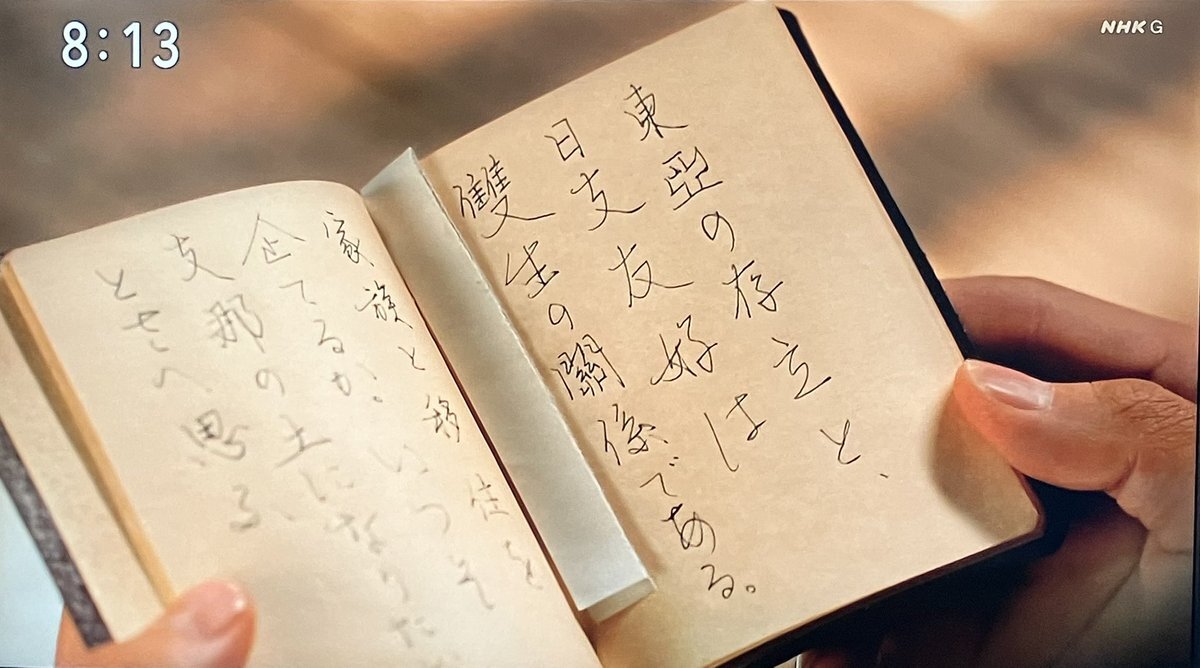 8:13
NHK G
東亞の存立と、
日支友好は
雙生の關係である。
家族と移住を
企てるが、いつそ
支那の土になりた
とさへ思る